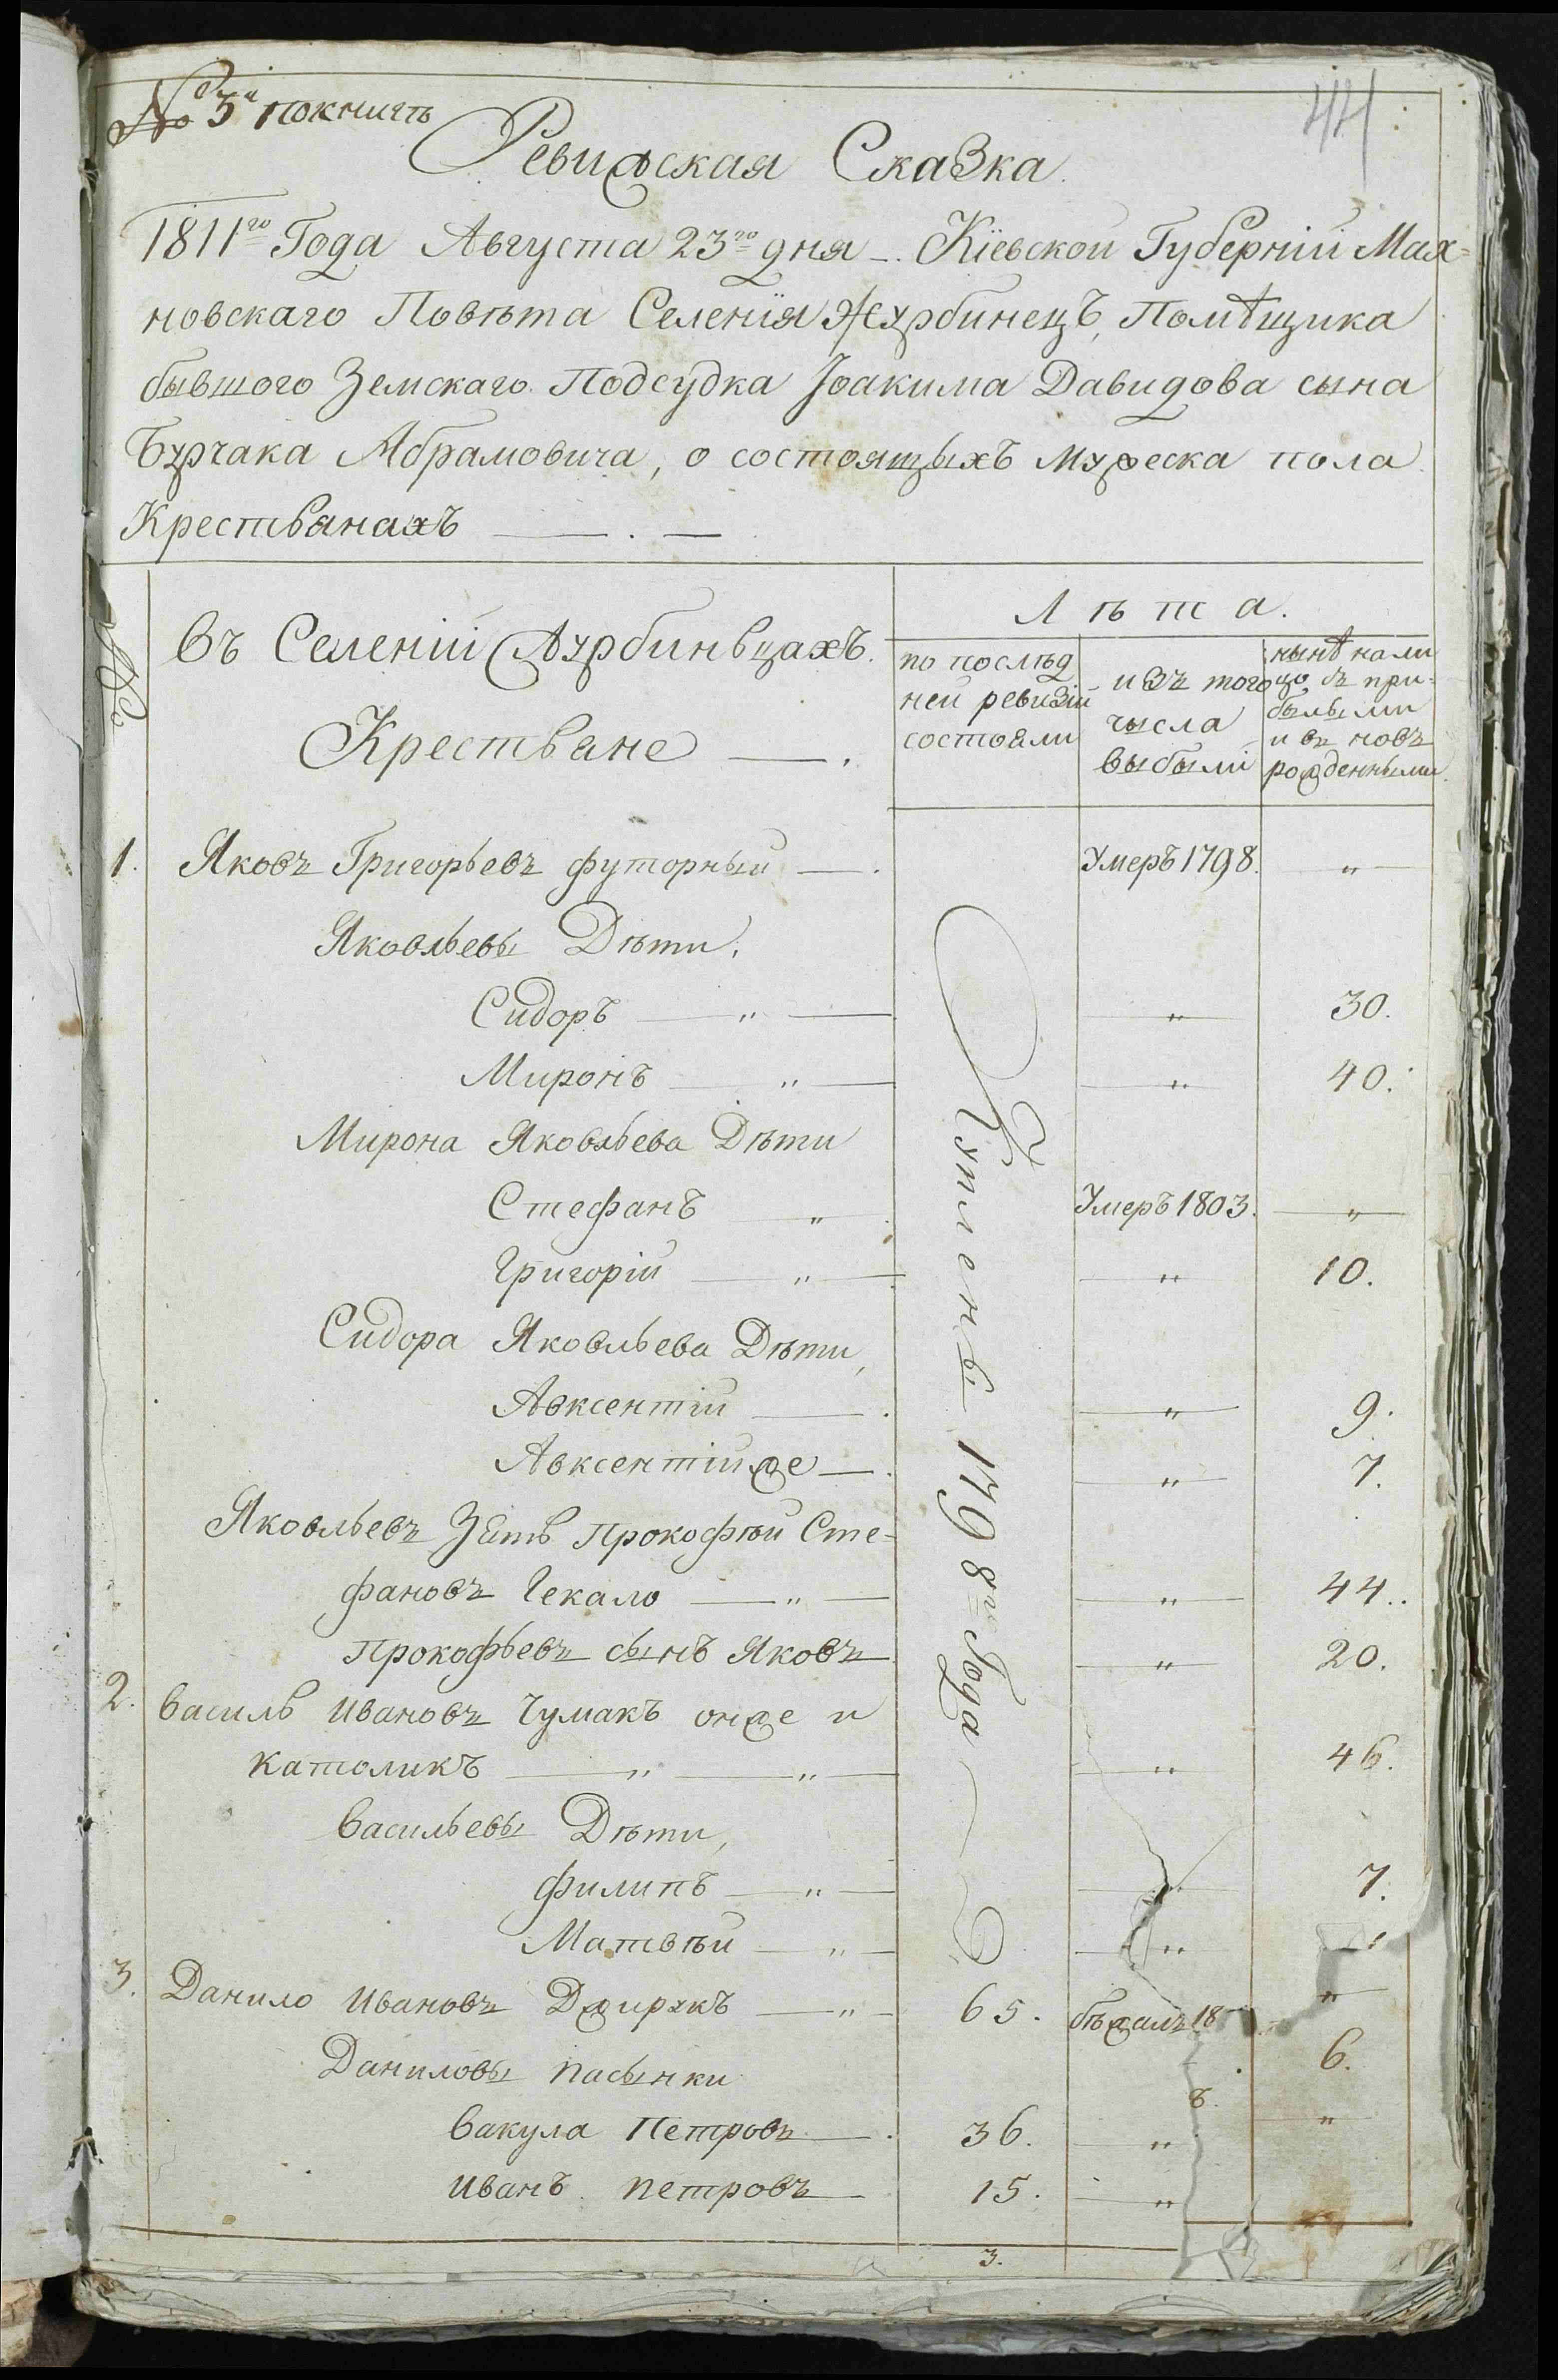 № 3й покнигѣ
44
Ревижская Сказка.
1811го Года Августа 23го дня —. Кіевской Губерніи Мах-
новскаго Повѣта Селенїя Журбинецъ, Помѣщика
бывшого Земскаго Подсудка Іоакима Давидова сына
Бурчака Абрамовича, о состоящыхъ мужеска пола
Крестьянахъ — . —
№
Въ Селеніи Журбиньцахъ.
Крестьяне — .
Лѣта.
по послѣд
ней ревизіи
состояли
изъ того
числа
выбыли
нынѣ нали
цо, съ при-
былыми
и въ новъ
рожденными.
1. Яковъ Григорьевъ футорный — . Умеръ 1798. "
Яковльевы Дѣти,
Сидоръ — " — " 30.
Миронъ — " — " 40.
Мирона Яковльева Дѣти
Стефанъ — " Умеръ 1803. "
Григорій — " — " 10.
Сидора Яковльева Дѣти,
Авксентій — . " 9.
Авксентій же — . " 7.
Яковльевъ Зять Прокофѣй Сте-
фановъ Чекало — " — " 44.
Прокофьевъ сынъ Яковъ " 20.
2. Василь Ивановъ Чумакъ онже и
католикъ — " — " — " 46.
Васильевы Дѣти,
Филипъ — " — 7.
Матвѣй — " — "
1798го Года
3. Данило Ивановъ Джирукъ — " — 65. бѣжалъ 18 "
6.
Даниловы пасынки
Вакула Петровъ — . 36. " "
Иванъ Петровъ — 15. "
3.